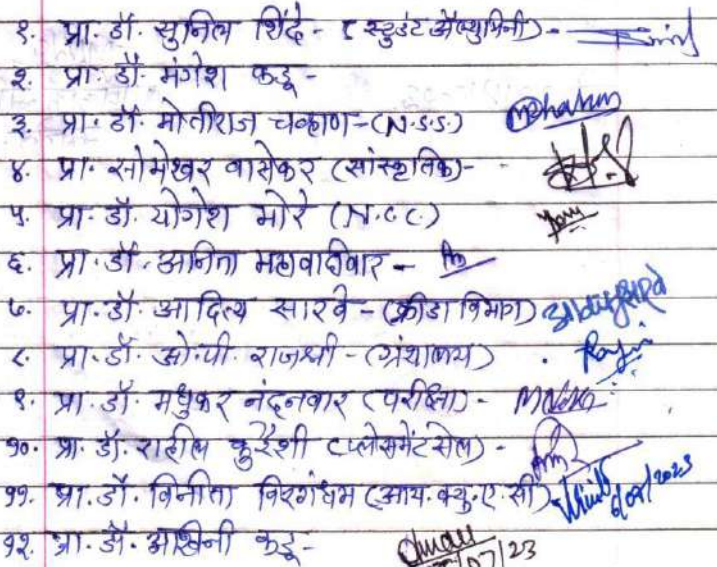 १. प्रा. डॉ. सुनिल शिंदे - (स्टुडंट अॅल्युमिनी) -
२. प्रा. डॉ. मंगेश कडू -
३. प्रा. डॉ. मोतीराज चव्हाण - (N.S.S.)
४. प्रा. सोमेश्वर वासेकर (सांस्कृतिक) -
५. प्रा. डॉ. योगेश मोरे (N.C.C.)
६. प्रा. डॉ. अनिता महावादीवार -
७. प्रा. डॉ. आदित्य सारवे - (क्रीडा विभाग)
८. प्रा. डॉ. ओ. पी. राजश्री - (ग्रंथालय)
९. प्रा. डॉ. मधुकर नंदनवार (परीक्षा) -
१०. प्रा. डॉ. राहील कुरेशी (प्लेसमेंट सेल) -
११. प्रा. डॉ. विनीता विरगंधम (आय. क्यु. ए. सी)
१२. प्रा. डॉ. अश्विनी कडू - /07/23